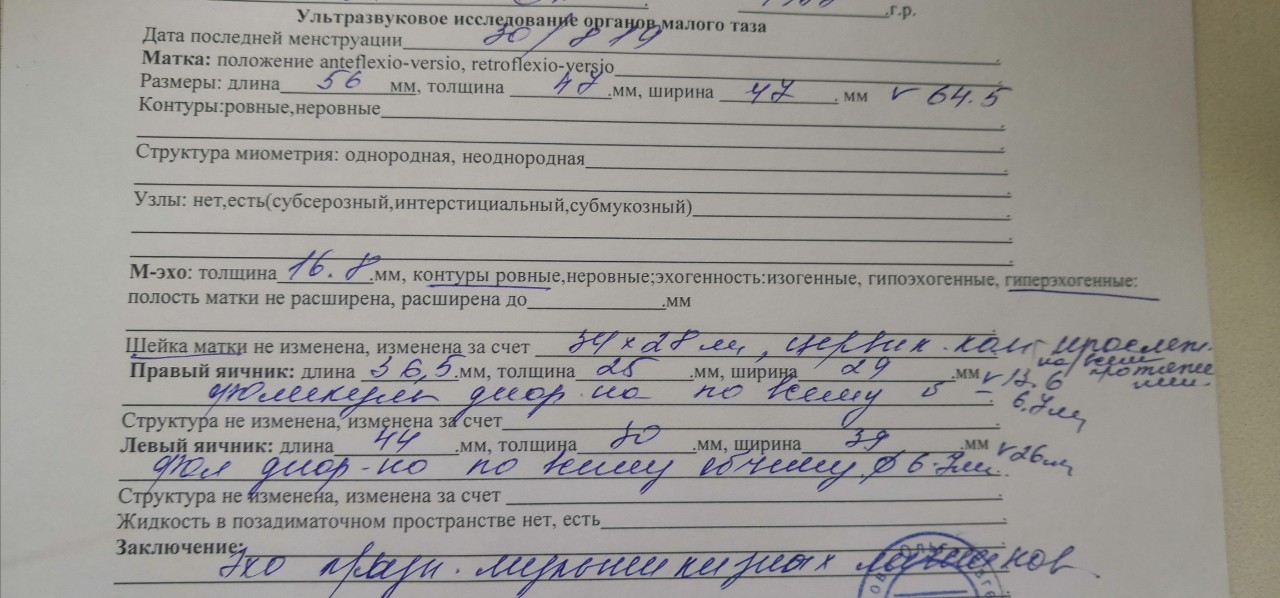 г.р.
Ультразвуковое исследование органов малого таза
Дата последней менструации 30/8 819
Матка: положение anteflexio-versio, retroflexio-versio
Размеры: длина 56 мм, толщина 47 .мм, ширина 47 . мм v 64.5
Контуры:ровные,неровные
Структура миометрия: однородная, неоднородная
Узлы: нет,есть(субсерозный,интерстициальный,субмукозный)
М-эхо: толщина 16.8 .мм, контуры ровные,неровные;эхогенность:изогенные, гипоэхогенные, гиперэхогенные:
полость матки не расширена, расширена до .мм
Шейка матки не изменена, изменена за счет 34 х 28 мм, цервик. кан прослеж.
на всем протяжении
Правый яичник: длина 36,5 .мм, толщина 25 .мм, ширина 29 .мм v 13.6
фолликулы диф-но по всему 5 - 6.7мм
Структура не изменена, изменена за счет
Левый яичник: длина 44 .мм, толщина 30 .мм, ширина 39 .мм v 26
фол по всему объему 6-7мм
Структура не изменена, изменена за счет
Жидкость в позадиматочном пространстве нет, есть
Заключение:
Эхо призн. мультикизных яичников